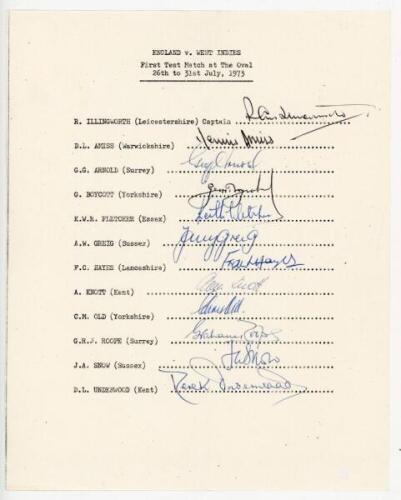 ENGLAND v. WEST INDIES
First Test Match at The Oval
26th to 31st July, 1973
R. ILLINGWORTH (Leicestershire) Captain
D.L. AMISS (Warwickshire) Dennis Amiss
G.G. ARNOLD (Surrey) Geoff Arnold
G. BOYCOTT (Yorkshire) Geoff Boycott
K.W.R. FLETCHER (Essex) Keith Fletcher
A.W. GREIG (Sussex) Tony Greig
F.C. HAYES (Lancashire) Frank Hayes
A. KNOTT (Kent) Alan Knott
C.M. OLD (Yorkshire) Chris Old
G.R.J. ROOPE (Surrey) Graham Roope
J.A. SNOW (Sussex) JASnow
D.L. UNDERWOOD (Kent) Derek Underwood